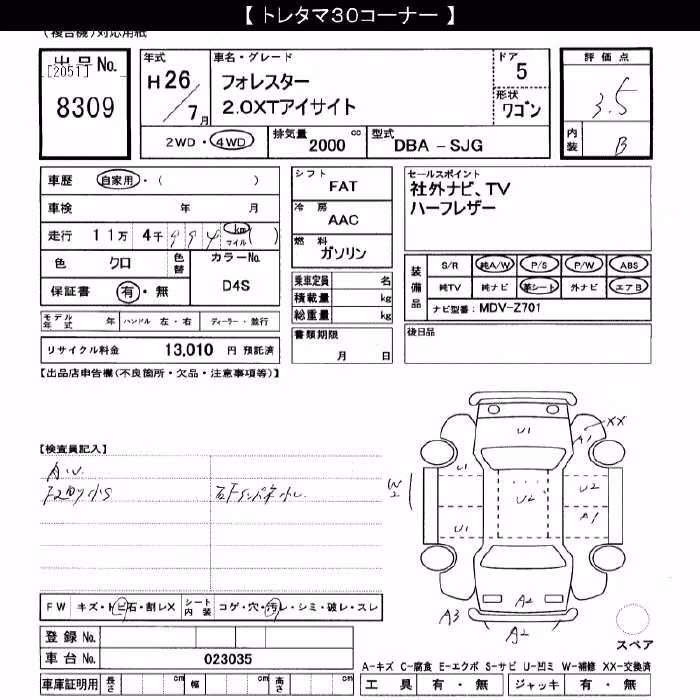 【 トレタマ30コーナー 】
(複合機)対応用紙
出品No.
[2051]
8309
年式
H26/7月
車名・グレード
フォレスター
2.0XTアイサイト
ドア
5
形状
ワゴン
評価点
3.5
内装
B
2WD・4WD
排気量 2000 cc
型式 DBA-SJG
車歴 自家用・( )
車検 年 月
走行 11万 4千 994 km マイル ( )
色 クロ 色替
カラーNo.
D4S
保証書 有・無
モデル年式 年 ハンドル 左・右 ディーラー・並行
リサイクル料金 13,010 円 預託済
シフト
FAT
冷房
AAC
燃料
ガソリン
乗車定員 名
積載量 kg
総重量 kg
書類期限
月 日
セールスポイント
社外ナビ、TV
ハーフレザー
装備品
S/R 純A/W P/S P/W ABS
純TV 純ナビ 革シート 外ナビ エアB
ナビ型番: MDV-Z701
後日品
【出品店申告欄(不良箇所・欠品・注意事項等)】
【検査員記入】
A.U.
XX
A1
U1
U1
U2
U2
W2
U1
A1
A2
A3
A2
FW キズ・トビ石・割レX シート内装 コゲ・穴・汚レ・シミ・破レ・スレ
登録No.
車台No. 023035
車庫証明用 長さ cm 幅 cm 高さ cm
スペア
A-キズ C-腐食 E-エクボ S-サビ U-凹ミ W-補修 XX-交換済
工具 有・無 ジャッキ 有・無